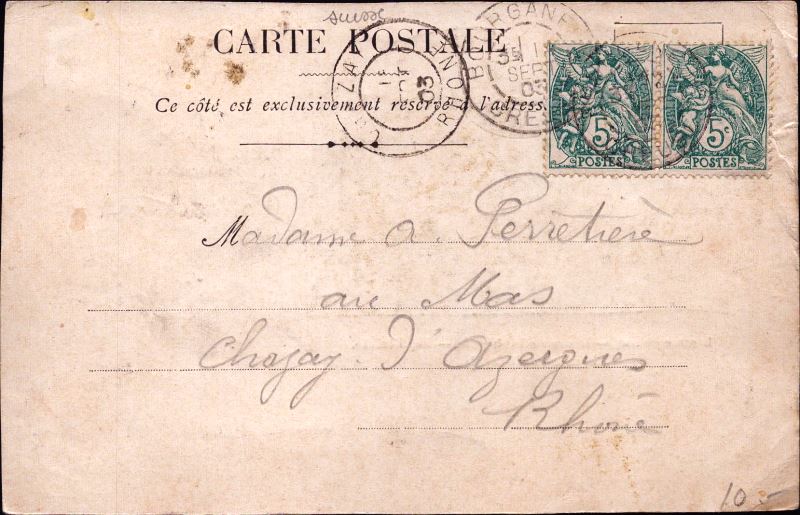 suisse
CARTE POSTALE
Ce côté est exclusivement réservé à l'adresse
CHAZAY RHONE
03
BOURGANEUF CREUSE
1 SEPT
03
5c POSTES
5c POSTES
Madame A. Perretière
au Mas
Chazay-d'Azergues
Rhône
10-